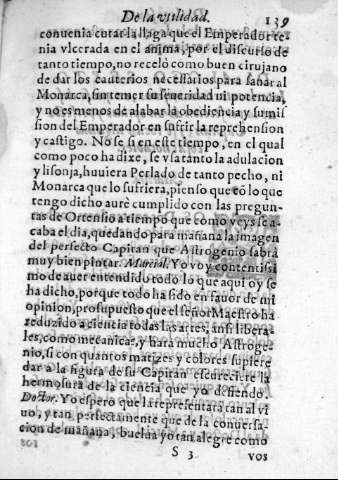 De la vtilidad. 139
conuenia curar la llaga que el Emperador te-
nia vlcerada en el anima, por el discurso de
tanto tiempo, no receló como buen cirujano
de dar los cauterios necessarios para sanar al
Monarca, sin temer su seueridad ni potencia,
y no es menos de alabar la obediencia y sumis
sion del Emperador en sufrir la reprehension
y castigo. No se si en este tiempo, en el qual
como poco ha dixe, se vsa tanto la adulacion
y lisonja, huuiera Perlado de tanto pecho, ni
Monarca que lo sufriera, pienso que cō lo que
tengo dicho auré cumplido con las pregun-
tas de Ortensio a tiempo que como veys se a-
caba el dia, quedando para mañana la imagen
del perfecto Capitan que Astrogenio sabrá
muy bien pintar. Marcial. Yo voy contentissi
mo de auer entendido todo lo que aqui oy se
ha dicho, porque todo ha sido en fauor de mi
opinion, prosupuesto que el señor Maestro ha
reduzido a ciencia todas las artes, ansi libera-
les, como mecanicas, y hara mucho Astroge-
nio, si con quantos matizes y colores supiere
dar a la figura de su Capitan escureciere la
hermosura de la ciencia que yo defiendo.
Doctor. Yo espero que la representara tan al vi
uo, y tan perfectamente que de la conuersa-
cion de mañana, buelua yo tan alegre como
S 3 vos